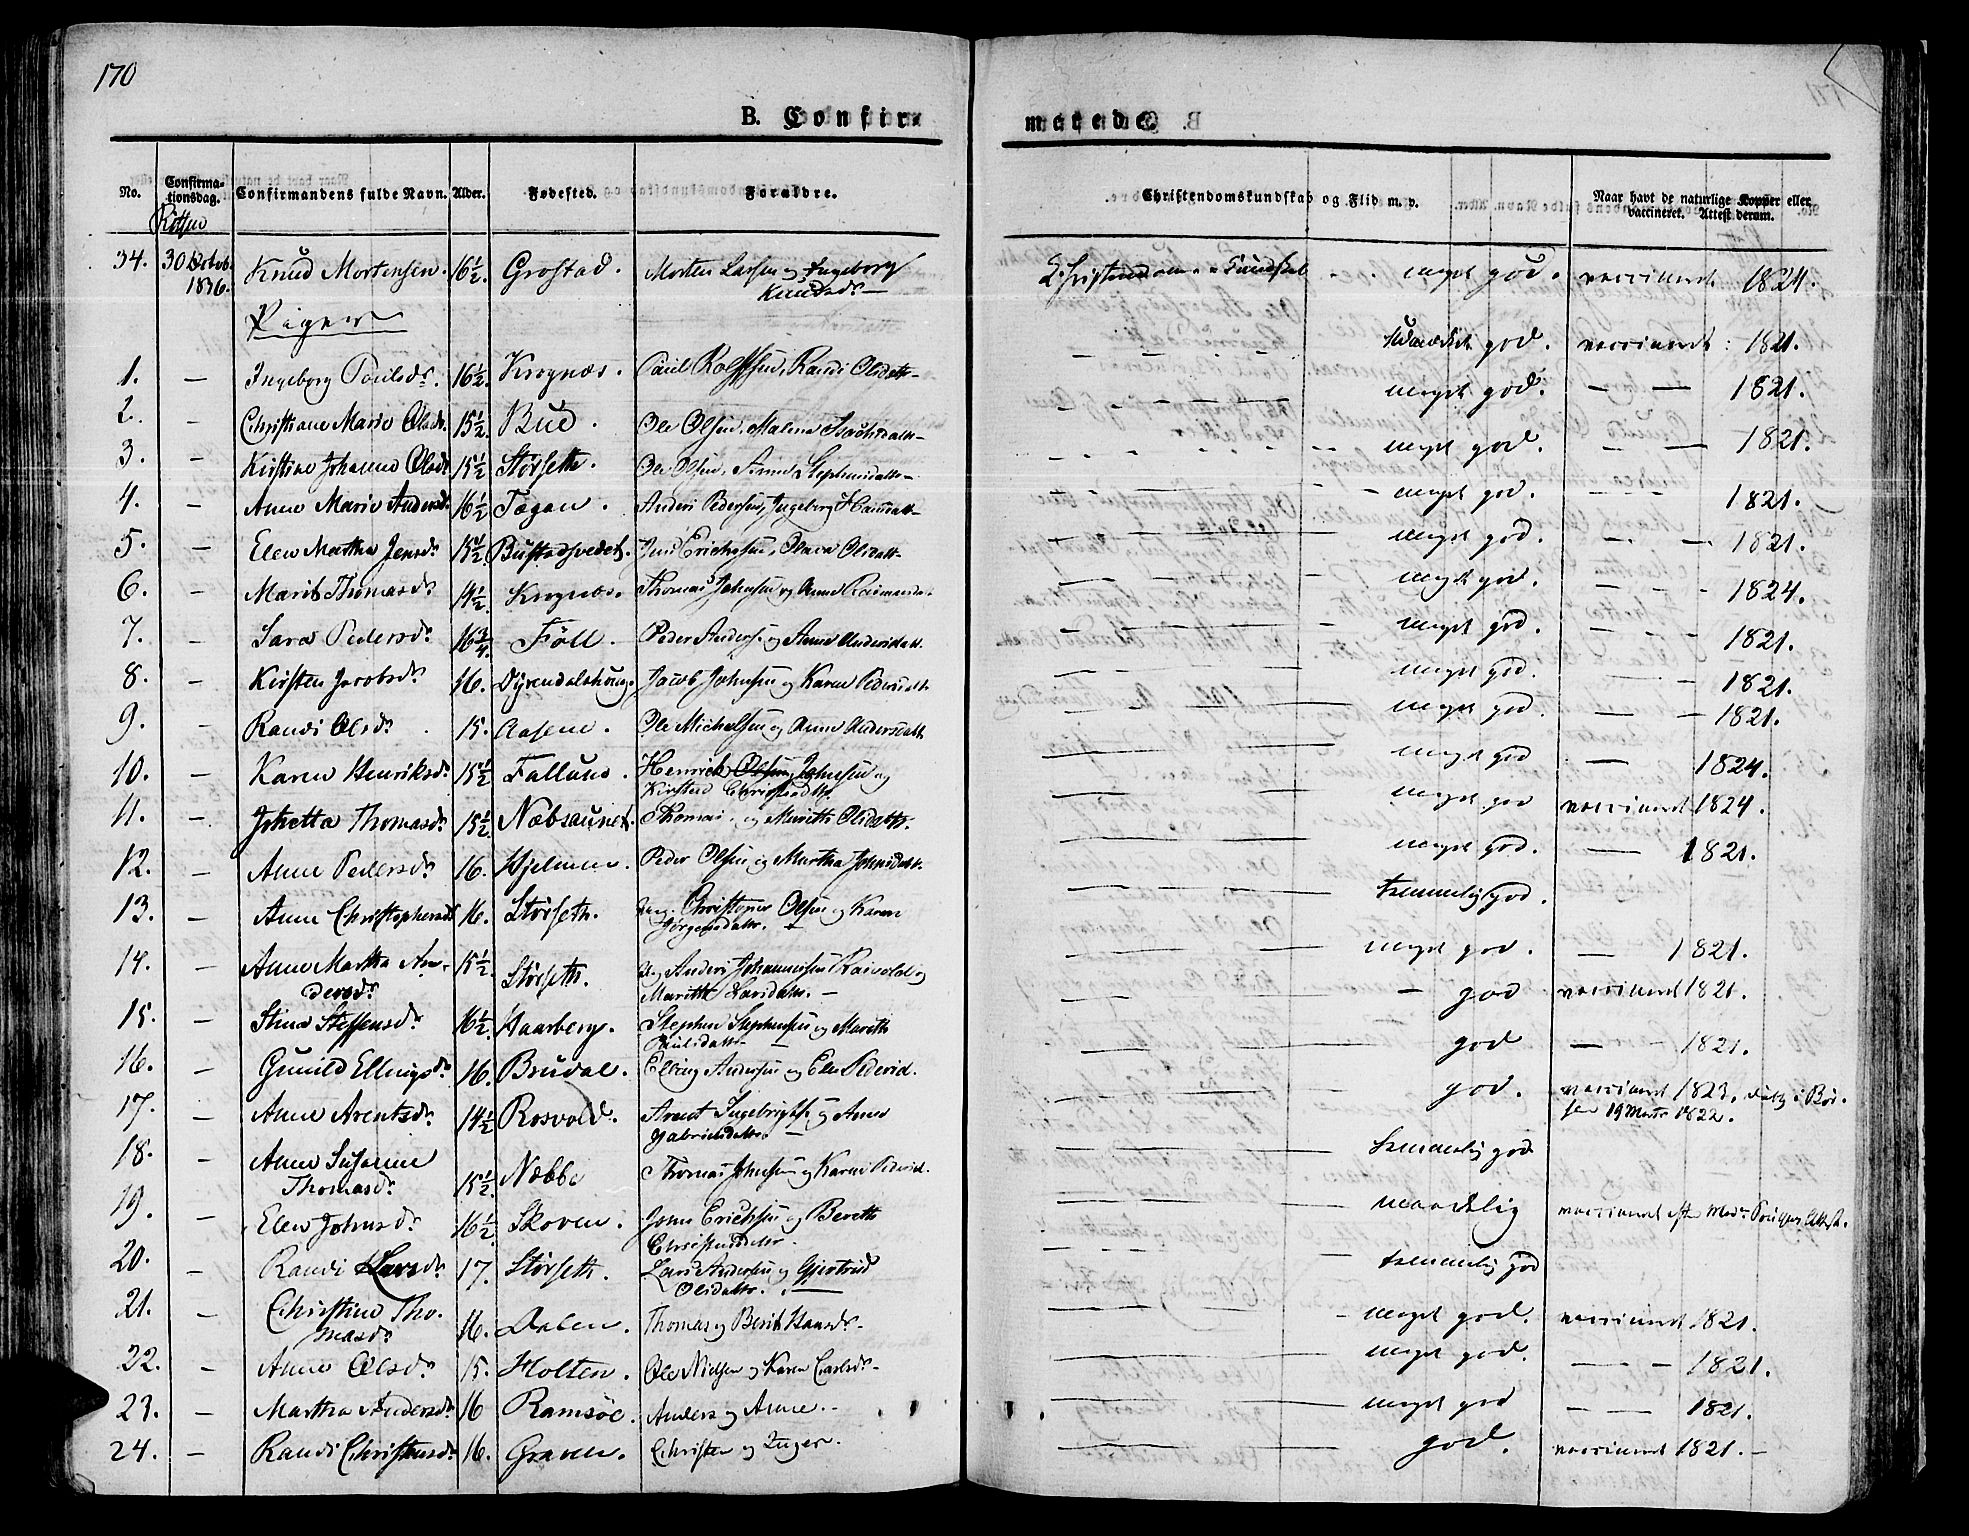 170
B. Confir-
marede
No.
Confirma-
tionsdag.
Confirmandens fulde Navn.
Alder.
Fødested.
Forældre.
Christendomskundskab og Flid m. v.
Naar havt de naturlige Kopper eller
vaccineret. Attest derom.
34. 30 Octob. 1836. Knud Mortensen. 16½. Grostad. Morten Larsen og Ingeborg Knudsdr — Christendoms Kundskab meget god. vaccineret 1824.
Piger
1. — Ingeborg Poulsdr. 16½. Krognæs. Paul Rolfsen, Randi Olsdattr — god. vaccineret: 1821.
2. — Christiane Marie Olsdr. 15½. Bud. Ole Olsen, Malena — meget god. — — 1821.
3. — Kirstine Johanna Olsdr 15½. Størseth. Ole Olsen, Anne Stephensdattr — meget god. — 1821.
4. — Anne Marie Andersdr 16½ Tægan. Anders Pedersen, Ingeborg Hansdattr — meget god. — — 1821.
5. — Elen Martha Jensdr 15½. Bustadsvedet. Jens Erichsen, Olava Olsdattr — meget god. — — 1821.
6. — Marit Thomasdr 14½. Krognæs. Thomas Johnsen og Anne Rasmusdr meget god. — 1824.
7. — Sara Pedersdr. 16¾ Föll. Peder Anders. og Anne Andersdatt. meget god. — 1821.
8. — Kirsten Jacobsdr. 16. Dyrendalshaug. Jacob Johnsen og Karen Pedersdattr meget god. — 1821.
9. — Randi Olsdr. 15. Aasene. Ole Michelsen og Anne Andersdattr meget god. — — 1821.
10. — Karen Henriksdr. 15½. Fallund. Henrich Olsen Johnsen og Kirsten Christensdattr meget god — 1824.
11. — Johetta Thomasdr. 15½. Næbsaunet. Thomas. og Marith Olsdattr. meget god vaccineret 1824.
12. — Anne Pedersdr. 16. Hjelmen. Peder Olsen og Martha Johnsdattr. meget god. — 1821.
13. — Anne Christophersdr 16. Størseth. Christopher Olsen og Karen Jörgensdattr. — temmelig god.
14. — Anne Martha An-
dersdr. 15½. Størseth. Anders Johannessen Raivold og Marith Larsdattr. — meget god. — 1821.
15. — Stine Steffensdr. 16½. Haarberg. Stephen Stephensen og Marith Paulsdattr — — god vaccineret 1821.
16. — Gunild Ellingsdr. 16. Brudal. Elling Andersen og Elen Pedersd. god — — 1821.
17. — Anne Arentsdr. 14½ Rosvold. Arent Ingebrigts. og Anne Gabrielsdattr. — god. vaccineret 1823, født i Bör-
sen 19 Marts 1822.
18. Anne Susanne
Thomasdr. 15½. Næbbe Thomas Johnsen og Karen Pedersd. temmelig god
19. — Elen Johnsdr. 16½. Skoven. John Erichsen og Bereth Christensdattr. maadelig vaccineret eft. Med. Attest.
20. — Randi Larsdr. 17. Størseth. Lars Andersen og Gjertrud Olsdattr. — temmelig god
21. — Christine Tho-
masdr 16. Dalen. Thomas og Berit Hansdr — meget god. vaccineret 1821.
22. — Anne Olsdr. 15. Holten. Ole Nielsen og Karen Carlsdr — meget god. — — — 1821.
23. — Martha Andersdr. 16 Ramsöe. Anders og Anne. — meget god — — 1821.
24. — Randi Christensdr. 16. Graven. Christen og Inger. god. vaccineret 1821. —